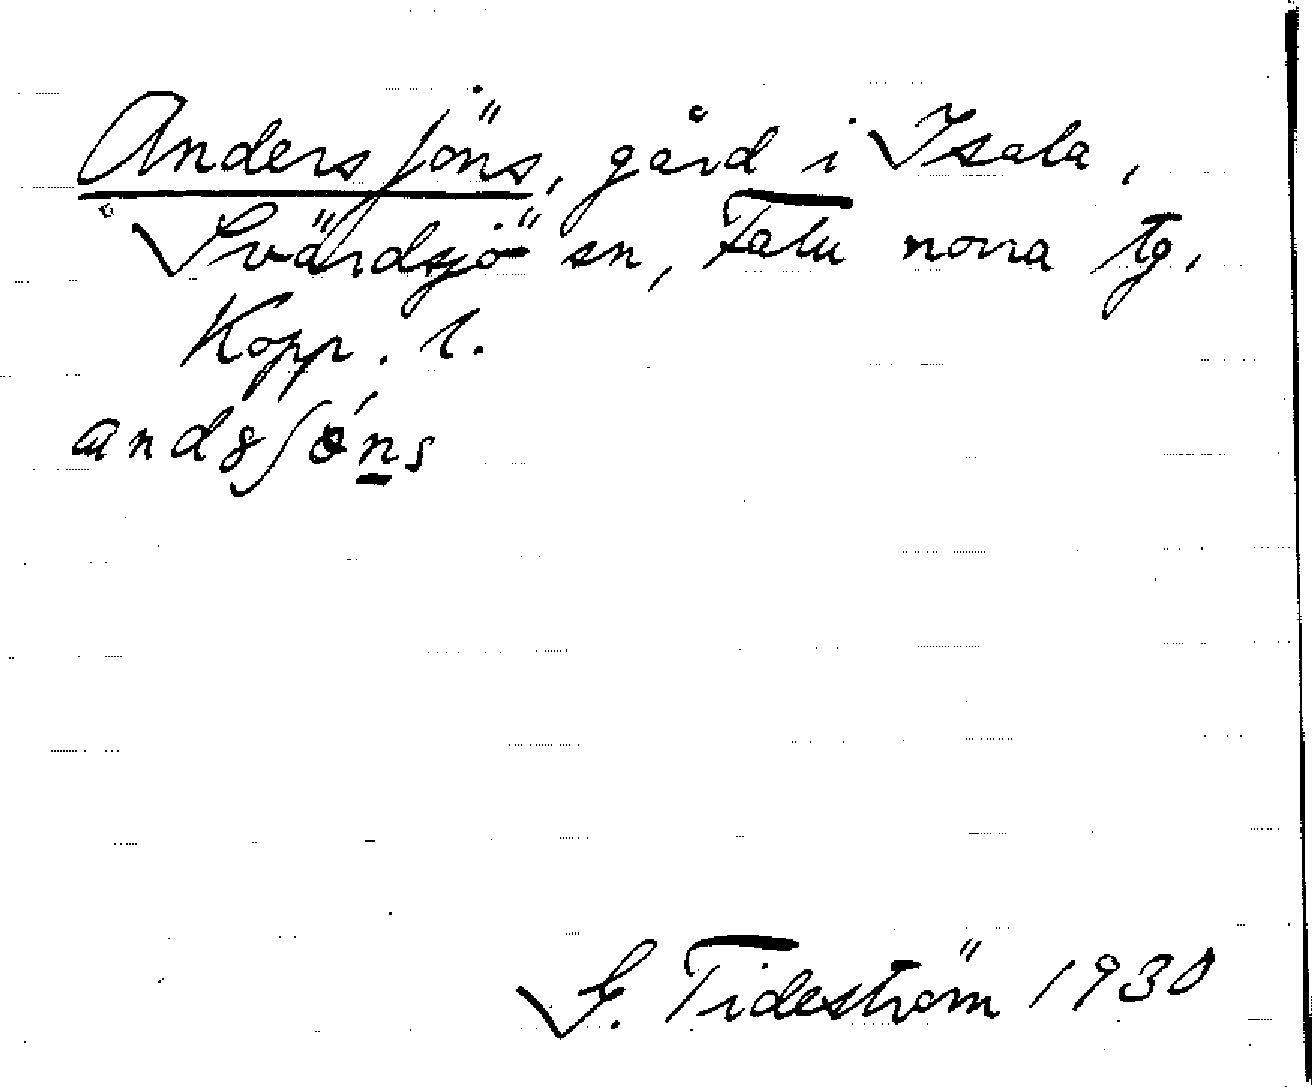 Anders Jöns, gård i Isala,
Svärdsjö sn, Falu norra tg.
Kopp. l.
G. Tideström 1930